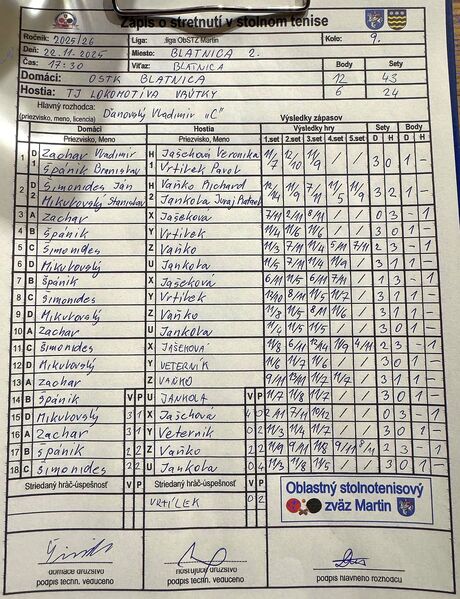 Zápis o stretnutí v stolnom tenise
Ročník: 2025/26 Liga: .liga ObSTZ Martin Kolo: 9.
Deň: 22.11.2025 Miesto: BLATNICA 2.
Čas: 17:30 Víťaz: BLATNICA Body Sety
Domáci: OSTK BLATNICA 12 43
Hostia: TJ LOKOMOTÍVA VRÚTKY 6 24
Hlavný rozhodca: Ďanovský Vladimír "C"
(priezvisko, meno, licencia) Výsledky zápasov
Domáci Hostia Výsledky hry Sety Body
Priezvisko, Meno Priezvisko, Meno 1.set 2.set 3.set 4.set 5.set D H D H
1 D1 Zachar Vladimír H1 Jašeková Veronika 11/7 12/10 11/9 / / 3 0 1 -
Špánik Branislav Vrtílek Pavol
2 D2 Šimonides Ján H2 Vaňko Richard 11/9 9/11 11/5 11/9 3 2 1 -
Mikutovský Stanislav Jankola Juraj
3 A Zachar X Jašeková 7/11 2/11 8/11 / / 0 3 - 1
4 B Špánik Y Vrtílek 11/4 11/6 11/6 / / 3 0 1 -
5 C Šimonides Z Vaňko 11/3 7/11 11/4 5/11 7/11 2 3 - 1
6 D Mikutovský U Jankola 11/5 11/4 11/9 / 3 1 1 -
7 B Špánik X Jašeková 6/11 11/5 6/11 7/11 / 1 3 - 1
8 C Šimonides Y Vrtílek 8/11 11/5 11/7 / 3 1 1 -
9 D Mikutovský Z Vaňko 11/5 8/11 11/6 / 3 1 1 -
10 A Zachar U Jankola 11/4 11/5 11/5 / / 3 0 1 -
11 C Šimonides X JAŠEKOVÁ 11/8 6/11 12/14 11/9 4/11 2 3 - 1
12 D Mikutovský Y VETERNÍK 11/6 11/7 11/6 / / 3 0 1 -
13 A Zachar Z VAŇKO 9/11 13/11 11/7 11/7 / 3 1 1 -
14 B Špánik V P U JANKOLA V P 11/7 11/8 11/7 / / 3 0 1 -
15 D Mikutovský 3 1 X Jašeková 4 0 7/11 10/12 / / 0 3 - 1
16 A Zachar 3 1 Y Veterník 0 2 11/4 11/3 11/6 / / 3 0 1 -
17 B Špánik 2 2 Z Vaňko 2 2 11/9 9/11 11/8 9/11 8/11 2 3 - 1
18 C Šimonides 2 2 U Jankola 0 4 11/3 11/8 11/5 / / 3 0 1 -
Striedaný hráč-úspešnosť V P Striedaný hráč-úspešnosť V P
VRTÍLEK 0 2
Oblastný stolnotenisový
zväz Martin
domáce družstvo hosťujúce družstvo
podpis techn. vedúceho podpis techn. vedúceho podpis hlavného rozhodcu